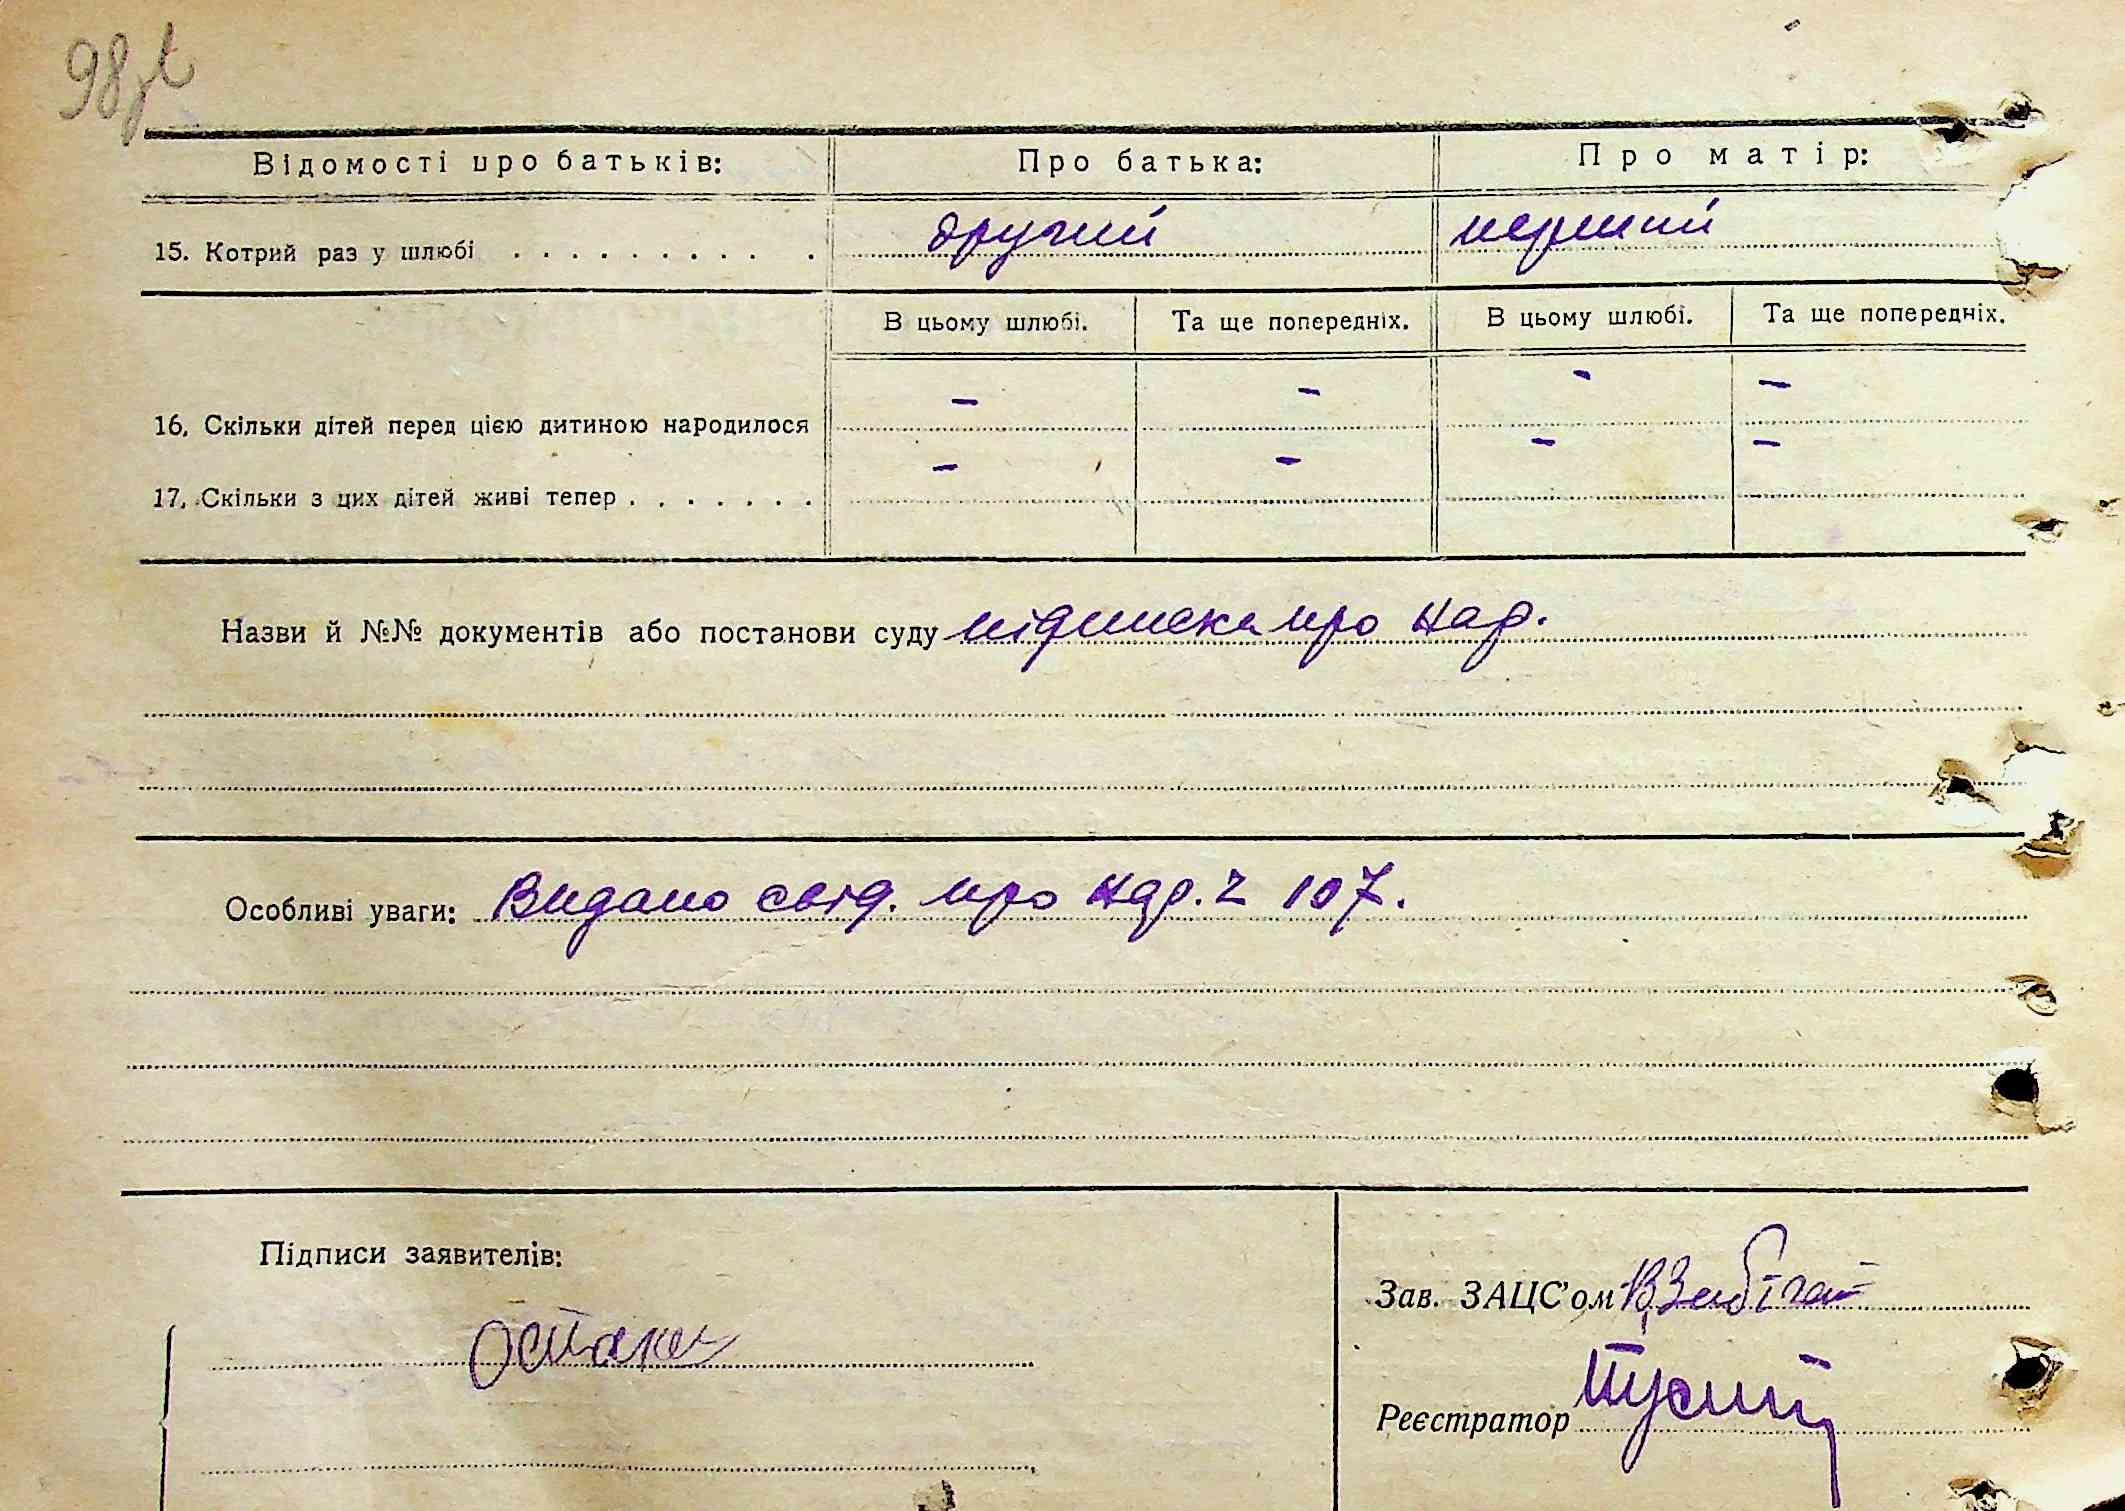 98
Відомості про батьків: Про батька: Про матір:
15. Котрий раз у шлюбі . . . . . . . . . . . другий перший
В цьому шлюбі. Та ще попередніх. В цьому шлюбі. Та ще попередніх.
16. Скільки дітей перед цією дитиною народилося – – – –
17. Скільки з цих дітей живі тепер . . . . . . . – – – –
Назви й №№ документів або постанови суду підписка про нар.
Особливі уваги: Видано свід. про нар. 107.
Підписи заявителів:
Зав. ЗАЦС'ом
Остака
Реєстратор